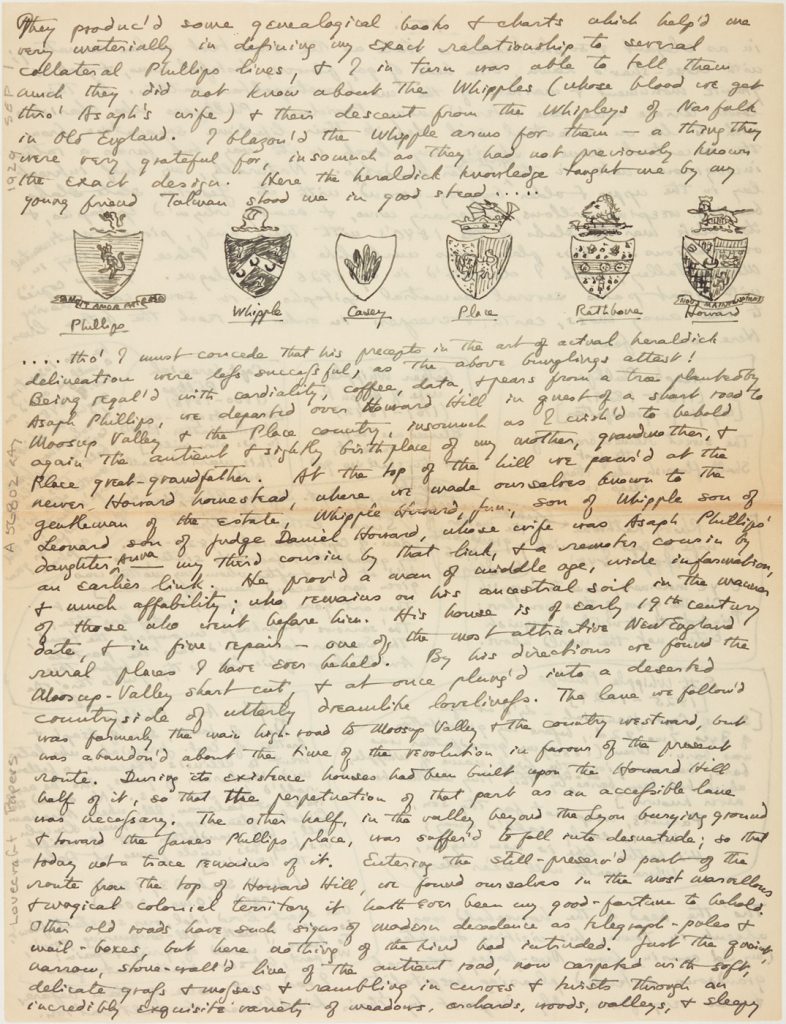 They produc'd some genealogical books & charts which help'd me
very materially in defining my exact relationship to several
collateral Phillips lines, & I in turn was able to tell them
much they did not know about the Whipples (whose blood we get
thro' Asaph's wife) & their descent from the Whipleys of Norfolk
in Old England. I blazon'd the Whipple arms for them — a thing they
were very grateful for, insomuch as they had not previously known
the exact design. Here the heraldick knowledge taught me by my
young friend Talman stood me in good stead.....
Phillips
Whipple
Casey
Place
Rathbone
Howard
.... tho' I must concede that his precepts in the art of actual heraldick
delineation were less successful, as the above bunglings attest!
Being regal'd with cordiality, coffee, data, & pears from a tree planted by
Asaph Phillips, we departed over Howard Hill in quest of a short road to
Moosup Valley & the Place country, insomuch as I wish'd to behold
again the antient & sightly birthplace of my mother, grandmother, &
Place great-grandfather. At the top of the hill we paus'd at the
newer Howard homestead, where we made ourselves known to the
gentleman of the estate, Whipple Howard, Jun., son of Whipple son of
Leonard son of Judge Daniel Howard, whose wife was Asaph Phillips'
daughter Anna — my third cousin by that link, & a remoter cousin by
an earlier link. He prov'd a man of middle age, wide information,
& much affability; who remains on his ancestral soil in the manner
of those who went before him. His house is of early 19th century
date, & in fine repair — one of the most attractive New England
rural places I have ever beheld. By his directions we found the
Moosup-Valley short cut, & at once plung'd into a deserted
countryside of utterly dreamlike loveliness. The lane we follow'd
was formerly the main high-road to Moosup Valley & the country westward, but
was abandon'd about the time of the revolution in favour of the present
route. During its existence houses had been built upon the Howard Hill
half of it, so that the perpetuation of that part as an accessible lane
was necessary. The other half, in the valley beyond the Lyon burying ground
& toward the James Phillips place, was suffer'd to fall into desuetude; so that
today not a trace remains of it. Entering the still-preserv'd part of the
route from the top of Howard Hill, we found ourselves in the most marvellous
& magical colonial territory it hath ever been my good-fortune to behold.
Other old roads have such signs of modern decadence as telegraph-poles &
mail-boxes, but here nothing of the kind had intruded. Just the quaint,
narrow, stone-wall'd line of the antient road, now carpeted with soft,
delicate grass & mosses & rambling in curves & twists through an
incredibly exquisite variety of meadows, orchards, woods, valleys, & sleepy
1929 SEP 1
A56802 (A)
Lovecraft Papers